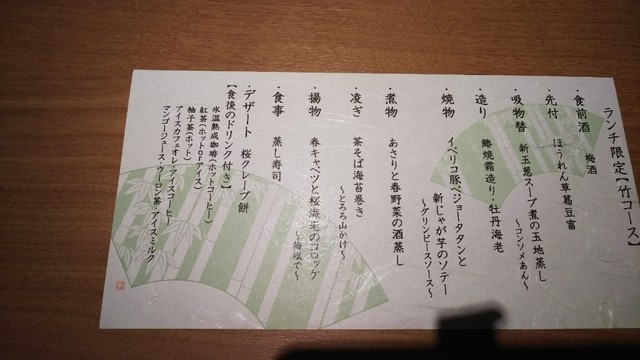 ランチ限定【竹コース】
・食前酒 梅酒
・先付 ほうれん草葛豆富
・吸物替 新玉葱スープ煮の玉地蒸し
～コンソメあん～
・造り 鰆焼霜造り・牡丹海老
・焼物 イベリコ豚ベジョータタンと
新じゃが芋のソテー
～グリンピースソース～
・煮物 あさりと春野菜の酒蒸し
・凌ぎ 茶そば海苔巻き
～とろろ山かけ～
・揚物 春キャベツと桜海老のコロッケ
～梅塩で～
・食事 蒸し寿司
・デザート 桜クレープ餅
【食後のドリンク付き】
氷温熟成珈琲(ホットコーヒー)
紅茶(ホットorアイス)
柚子茶(ホット)
アイスカフェオレ・アイスコーヒー
マンゴージュース・ウーロン茶・アイスミルク